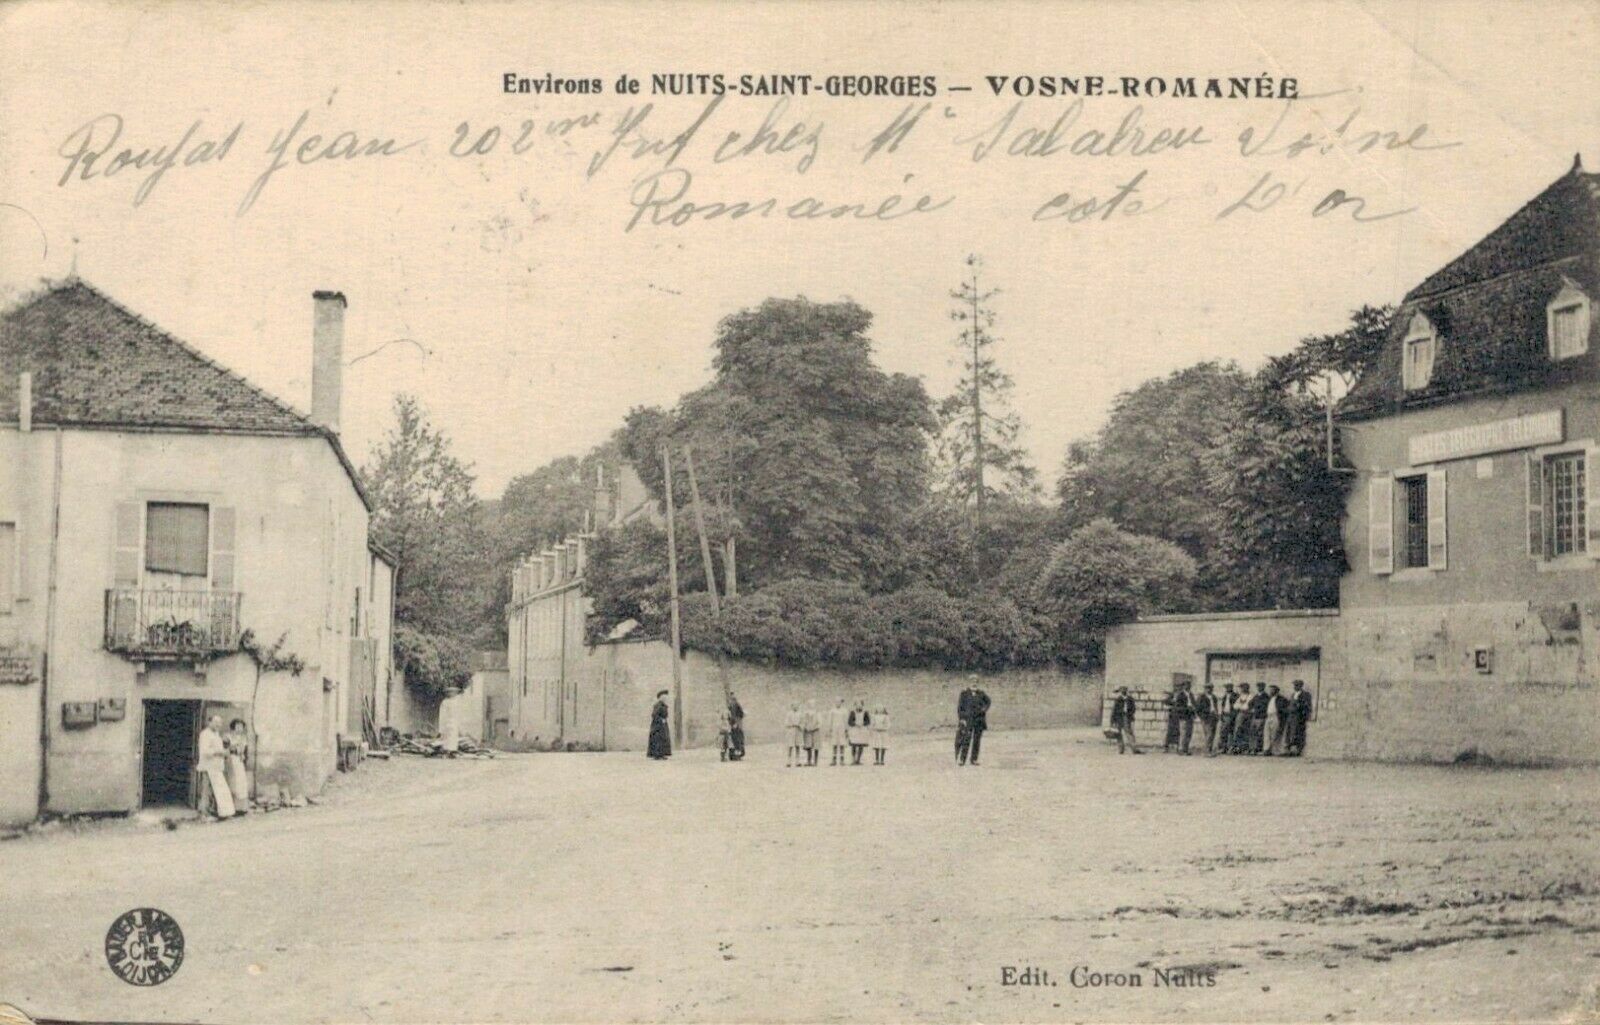 Environs de NUITS-SAINT-GEORGES — VOSNE-ROMANÉE
Roufat Jean 202me Inf chez Mr Salabreu Vosne
Romanée cote D'or
POSTES TÉLÉGRAPHE TÉLÉPHONE
DIJON
Edit. Coron Nuits